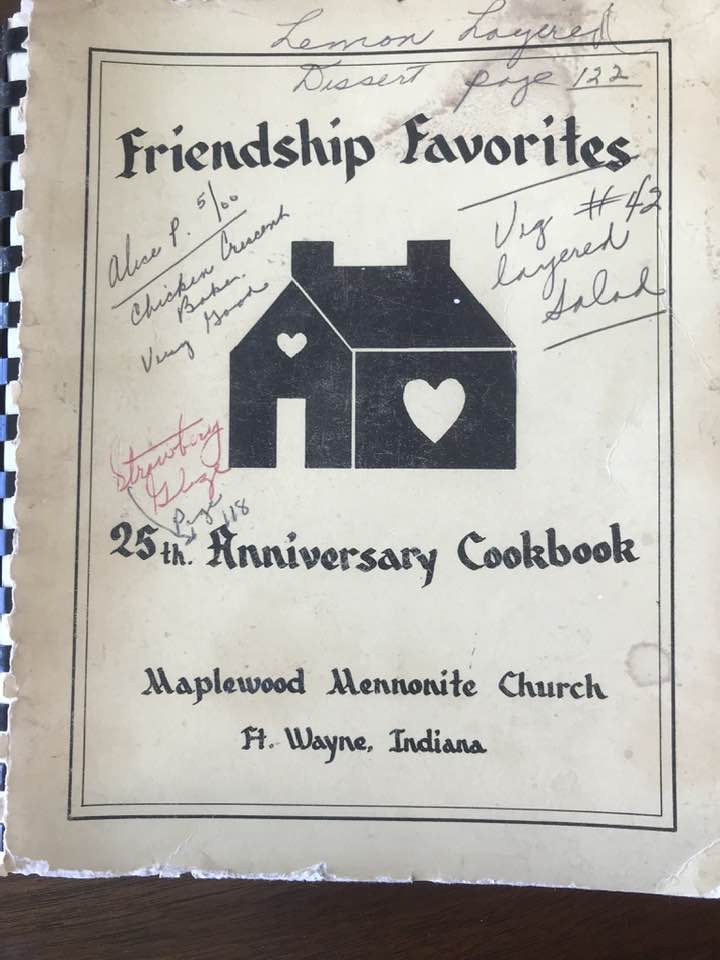 Lemon Layered
Dissert page 122
Friendship Favorites
Alice P. 5/00
Chicken Crescent
Bake.
Very Good
Veg #42
layered
Salad
Strawberry
Glaze
Page 118
25th. Anniversary Cookbook
Maplewood Mennonite Church
Ft. Wayne, Indiana